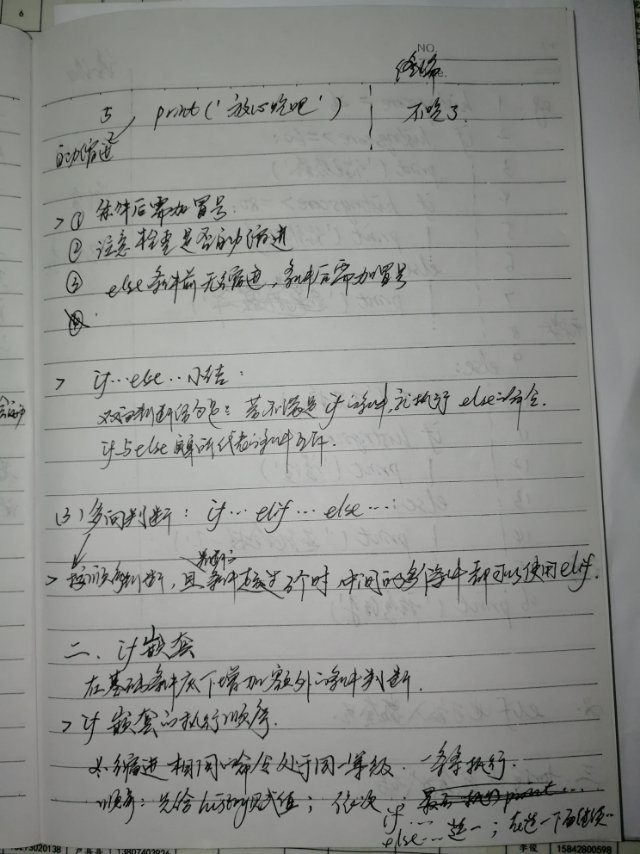 6
NO
5 print('放心吃吧') 不吃了
自动缩进
> ① 条件后需加冒号:
② 注意检查是否自动缩进
③ else条件前无缩进,条件后需加冒号
> if…else…小结:
双向判断语句: 若不满足if的条件,就执行else的命令.
if与else所代表的条件互斥.
(3)多向判断: if… elif… else…:
> 按顺序判断,且条件超过3个时,中间的多个条件都可以使用elif.
二、if嵌套
在基础条件底下增加额外的条件判断.
> if嵌套的执行顺序.
① 缩进相同的命令处于同一等级.一等等执行.
顺序:先给history赋值; 依次 if…
else… 选一;
13807403926
李俊 15842800598